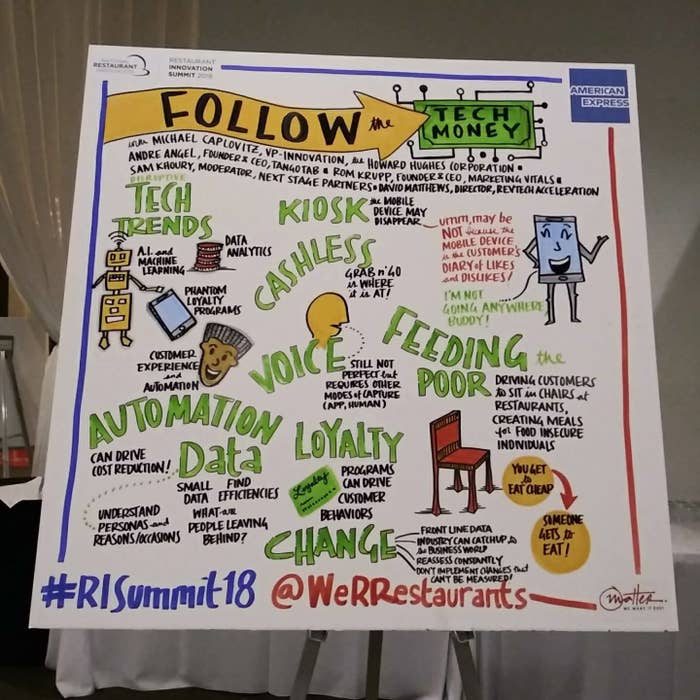 RESTAURANT
RESTAURANT
INNOVATION
SUMMIT 2018
AMERICAN
EXPRESS
FOLLOW the
TECH
MONEY
with MICHAEL CAPLOVITZ, VP-INNOVATION, the HOWARD HUGHES CORPORATION •
ANDRE ANGEL, FOUNDER & CEO, TANGOTAB • ROM KRUPP, FOUNDER & CEO, MARKETING VITALS •
SAM KHOURY, MODERATOR, NEXT STAGE PARTNERS • DAVID MATTHEWS, DIRECTOR, REVTECH ACCELERATION
DISRUPTIVE
TECH
TRENDS
A.I. and
MACHINE
LEARNING
DATA
ANALYTICS
PHANTOM
LOYALTY
PROGRAMS
CUSTOMER
EXPERIENCE
and
AUTOMATION
KIOSK the MOBILE
DEVICE MAY
DISAPPEAR
umm, may be
NOT because the
MOBILE DEVICE
is the CUSTOMER'S
DIARY of LIKES
and DISLIKES!
I'M NOT
GOING ANYWHERE
BUDDY!
CASHLESS
GRAB n' GO
is WHERE
it is AT!
VOICE
STILL NOT
PERFECT but
REQUIRES OTHER
MODES of CAPTURE
(APP, HUMAN)
FEEDING the
POOR
DRIVING CUSTOMERS
to SIT in CHAIRS at
RESTAURANTS,
CREATING MEALS
for FOOD INSECURE
INDIVIDUALS
YOU GET
to
EAT CHEAP
SOMEONE
GETS to
EAT!
AUTOMATION
CAN DRIVE
COST REDUCTION!
Data
SMALL DATA
FIND EFFICIENCIES
UNDERSTAND
PERSONAS and
REASONS/OCCASIONS
WHAT are
PEOPLE LEAVING
BEHIND?
LOYALTY
Loyalty
PROGRAMS
CAN DRIVE
CUSTOMER
BEHAVIORS
CHANGE
FRONT LINE DATA
INDUSTRY CAN CATCH UP to
the BUSINESS WORLD
REASSESS CONSTANTLY
DON'T IMPLEMENT CHANGES that
CAN'T BE MEASURED!
#RISummit18 @WeRRestaurants
matter.